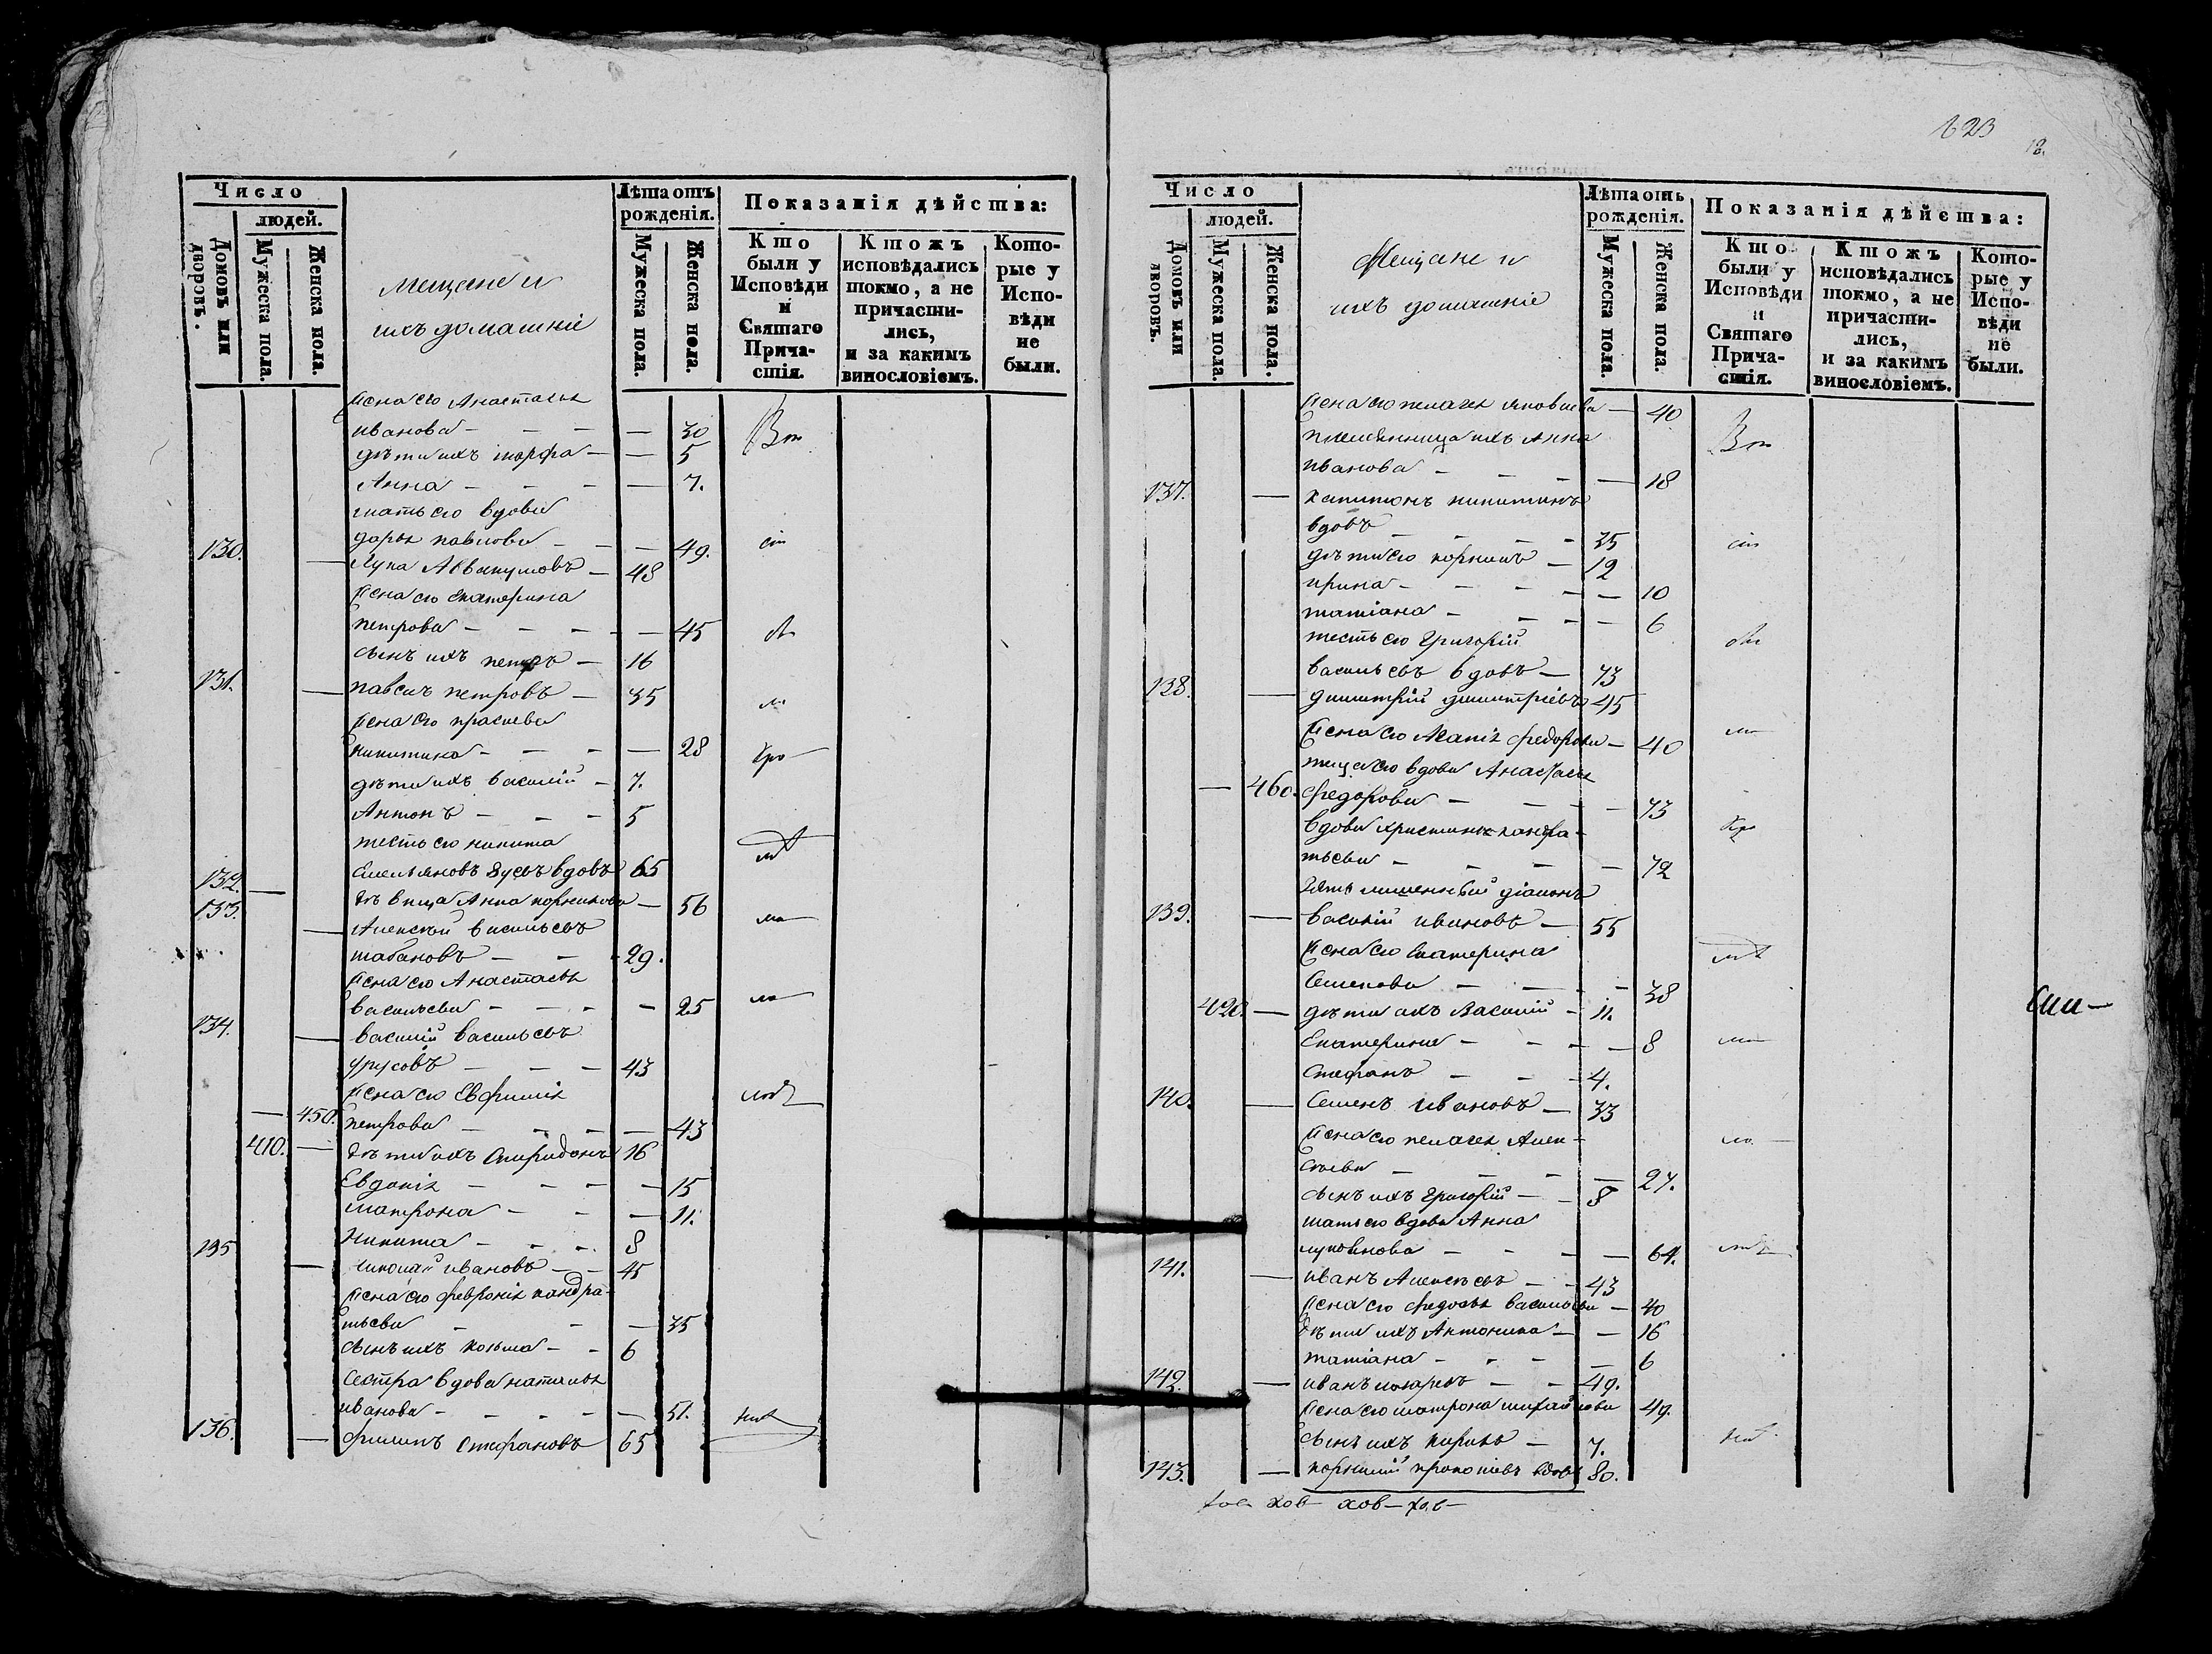 Число
людей.
Домовъ или дворовъ.
Мужеска пола.
Женска пола.
мещане и
ихъ домашніе
Лѣта отъ рожденія.
Мужеска пола.
Женска пола.
Показанія дѣйства:
Кто были у Исповѣди и Святаго Причастія.
Ктожъ исповѣдались токмо, а не причастились, и за какимъ винословіемъ.
Которые у Исповѣди не были.
жена его Анастасья
иванова — — — — 30
дѣти ихъ марфа — — 5
Анна — — — — 7.
мать его вдова
дарья павлова — — — 49.
130. — Лука Аввакумовъ — 48
жена его екатерина
петрова — — — — 45
сынъ ихъ петръ — 16
131. — павелъ петровъ — 35
жена его прасковья
никитина — — — — 28
дѣти ихъ василій — 7.
Антонъ — — — 5
тесть его никита
емельяновъ вдовъ 65
132. — дѣвица Анна корнилова — 56
133. — Алексѣй васильевъ
табановъ — — 29.
жена его Анастасья
васильева — — — — 25
134. — василій васильевъ
урусовъ — — — 43
жена его Евфимія
— 450. петрова — — — — 43
410. — дѣти ихъ спиридонъ 16
Евдокія — — — — 15
матрона — — — 11.
Никита — — — 8
135 — николай ивановъ — — 45
жена его февронія кандра-
тьева — — — 35
сынъ ихъ козьма — — 6
сестра вдова наталья
иванова — — — — — 51.
136. — филипъ стефановъ 65
623
12.
Число
людей.
Домовъ или дворовъ.
Мужеска пола.
Женска пола.
Мещане и
ихъ домашніе
Лѣта отъ рожденія.
Мужеска пола.
Женска пола.
Показанія дѣйства:
Кто были у Исповѣди и Святаго Причастія.
Ктожъ исповѣдались токмо, а не причастились, и за какимъ винословіемъ.
Которые у Исповѣди не были.
жена его пелагея яковлева — 40
племянница ихъ Анна
иванова — — — — 18
137. — капитонъ никитинъ
вдовъ — — — — 35
дѣти его корнилъ — 12
ирина — — — — — 10
татіана — — — — 6
тесть его григорій
васильевъ вдовъ — 73
138. — димитрій димитріевъ 45
жена его марія федорова — 40
теща его вдова Анастасья
— 460. федорова — — — — 73
вдова христинья кандра-
тьева — — — — 72
зять лишенный діаконъ
139. — василій ивановъ — 55
жена его екатерина
семенова — — — — 38
420. — дѣти ихъ василій — 11.
екатерина — — — — 8
стефанъ — — — 4.
140. — семенъ ивановъ — 33
жена его пелагея алек-
сѣева — — — — 27.
сынъ ихъ григорій — — 8
мать его вдова Анна
лукоянова — — — — 64.
141. — иванъ Алексѣевъ — — 43
жена его федосья васильева — 40
дѣти ихъ Антонина — — 16
татіана — — — — 6
142. — иванъ — — 49.
жена его матрона михайлова 49.
сынъ ихъ кирилъ — 7.
143. — корнилій прокопіевъ вдовъ 80.